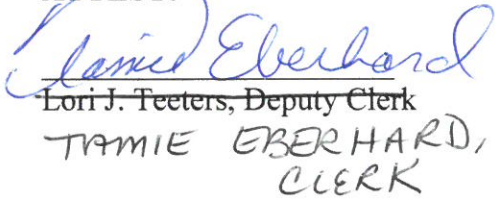 Tamie Eberhard
Lori J. Teeters, Deputy Clerk
TAMIE EBERHARD,
CLERK